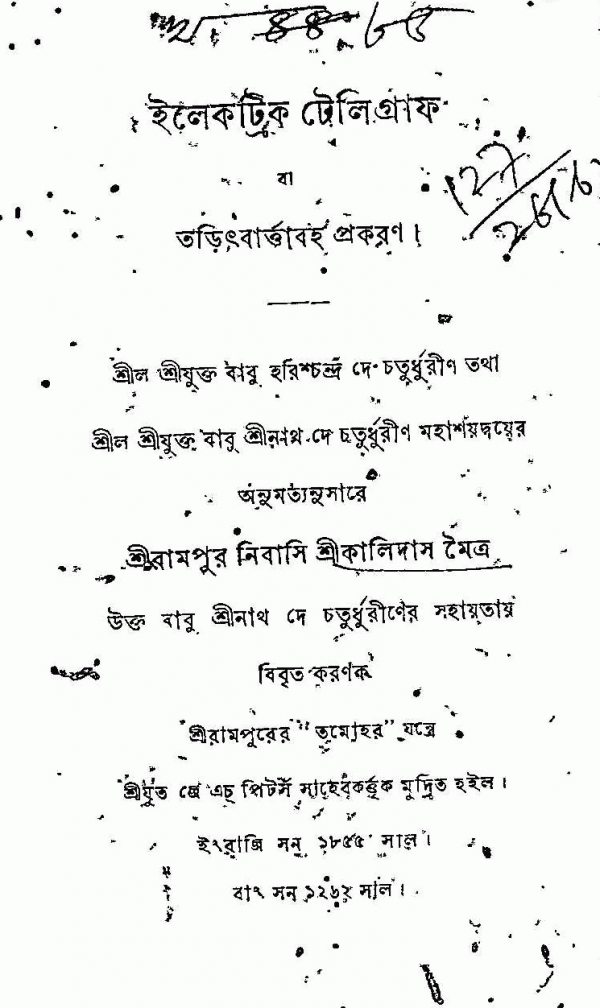 ইলেকট্রিক টেলিগ্রাফ
বা
তড়িৎবার্ত্তাবহ প্রকরণ।
শ্রীল শ্রীযুক্ত বাবু হরিশ্চন্দ্র দে চতুর্ধুরীণ তথা
শ্রীল শ্রীযুক্ত বাবু শ্রীনাথ দে চতুর্ধুরীণ মহাশয়দ্বয়ের
অনুমত্যনুসারে
শ্রীরামপুর নিবাসি শ্রীকালিদাস মৈত্র
উক্ত বাবু শ্রীনাথ দে চতুর্ধুরীণের সহায়তায়
বিবৃত করণক
শ্রীরামপুরের "তমোহর" যন্ত্রে
শ্রীযুত জে এচ পিটর্স সাহেবকর্ত্তৃক মুদ্রিত হইল।
ইংরাজি সন ১৮৫৫ সাল।
বাং সন ১২৬২ সাল।